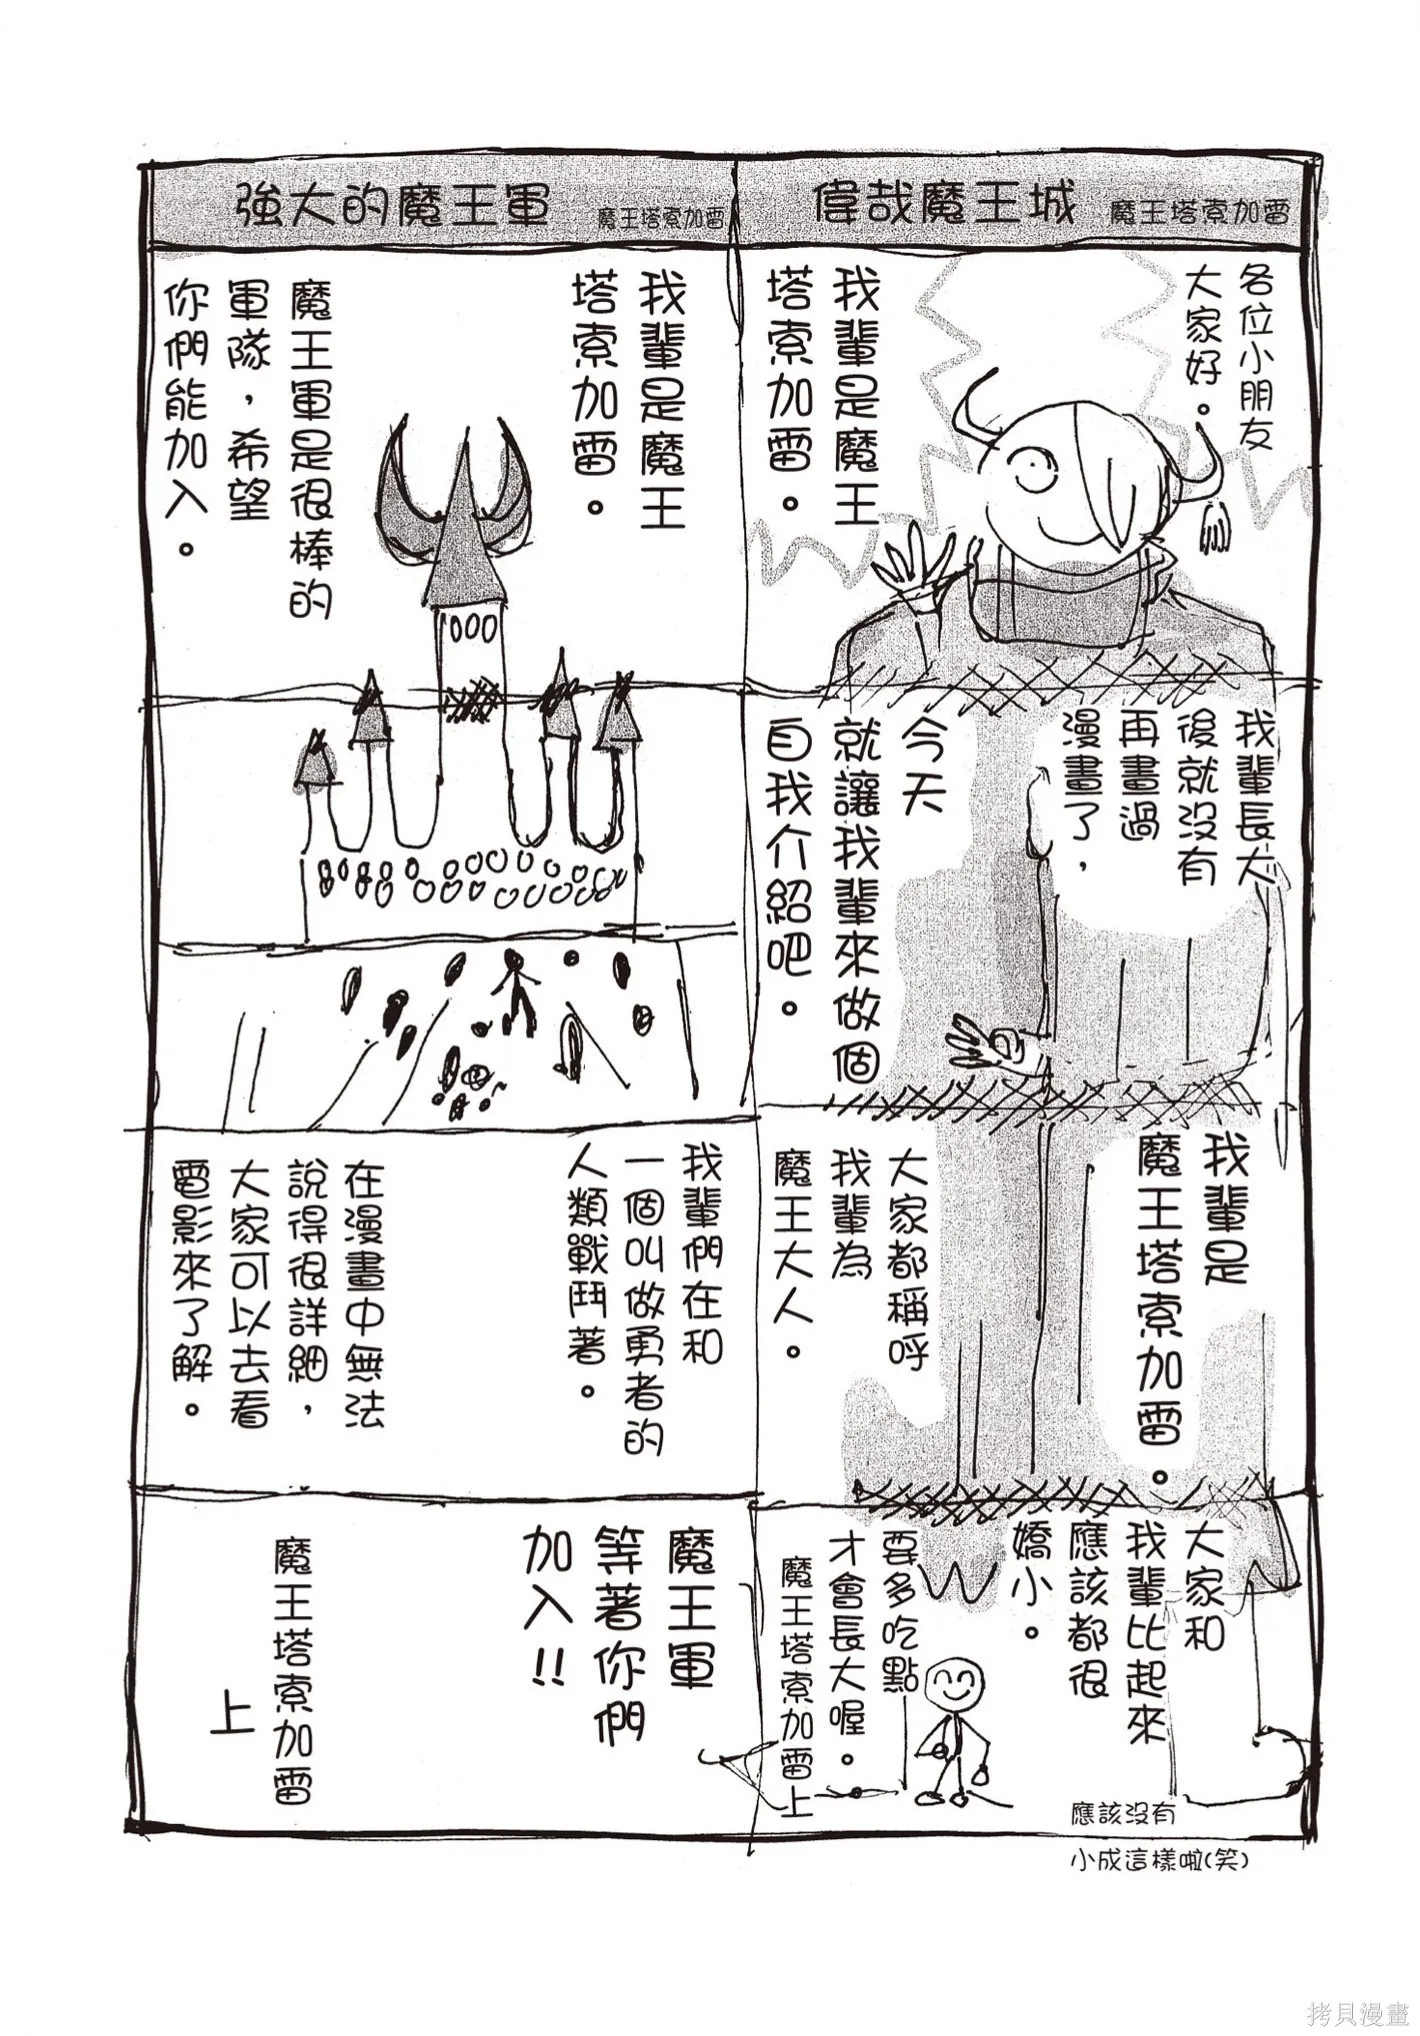 偉哉魔王城
魔王塔索加雷
各位小朋友
大家好。
我輩是魔王
塔索加雷。
我輩長大
後就沒有
再畫過
漫畫了，
今天
就讓我輩來做個
自我介紹吧。
我輩是
魔王塔索加雷。
大家都稱呼
我輩為
魔王大人。
大家和
我輩比起來
應該都很
嬌小。
要多吃點
才會長大喔。
魔王塔索加雷上
應該沒有
小成這樣啦(笑)
強大的魔王軍
魔王塔索加雷
我輩是魔王
塔索加雷。
魔王軍是很棒的
軍隊，希望
你們能加入。
我輩們在和
一個叫做勇者的
人類戰鬥著。
在漫畫中無法
說得很詳細，
大家可以去看
電影來了解。
魔王軍
等著你們
加入!!
魔王塔索加雷
上
拷貝漫畫